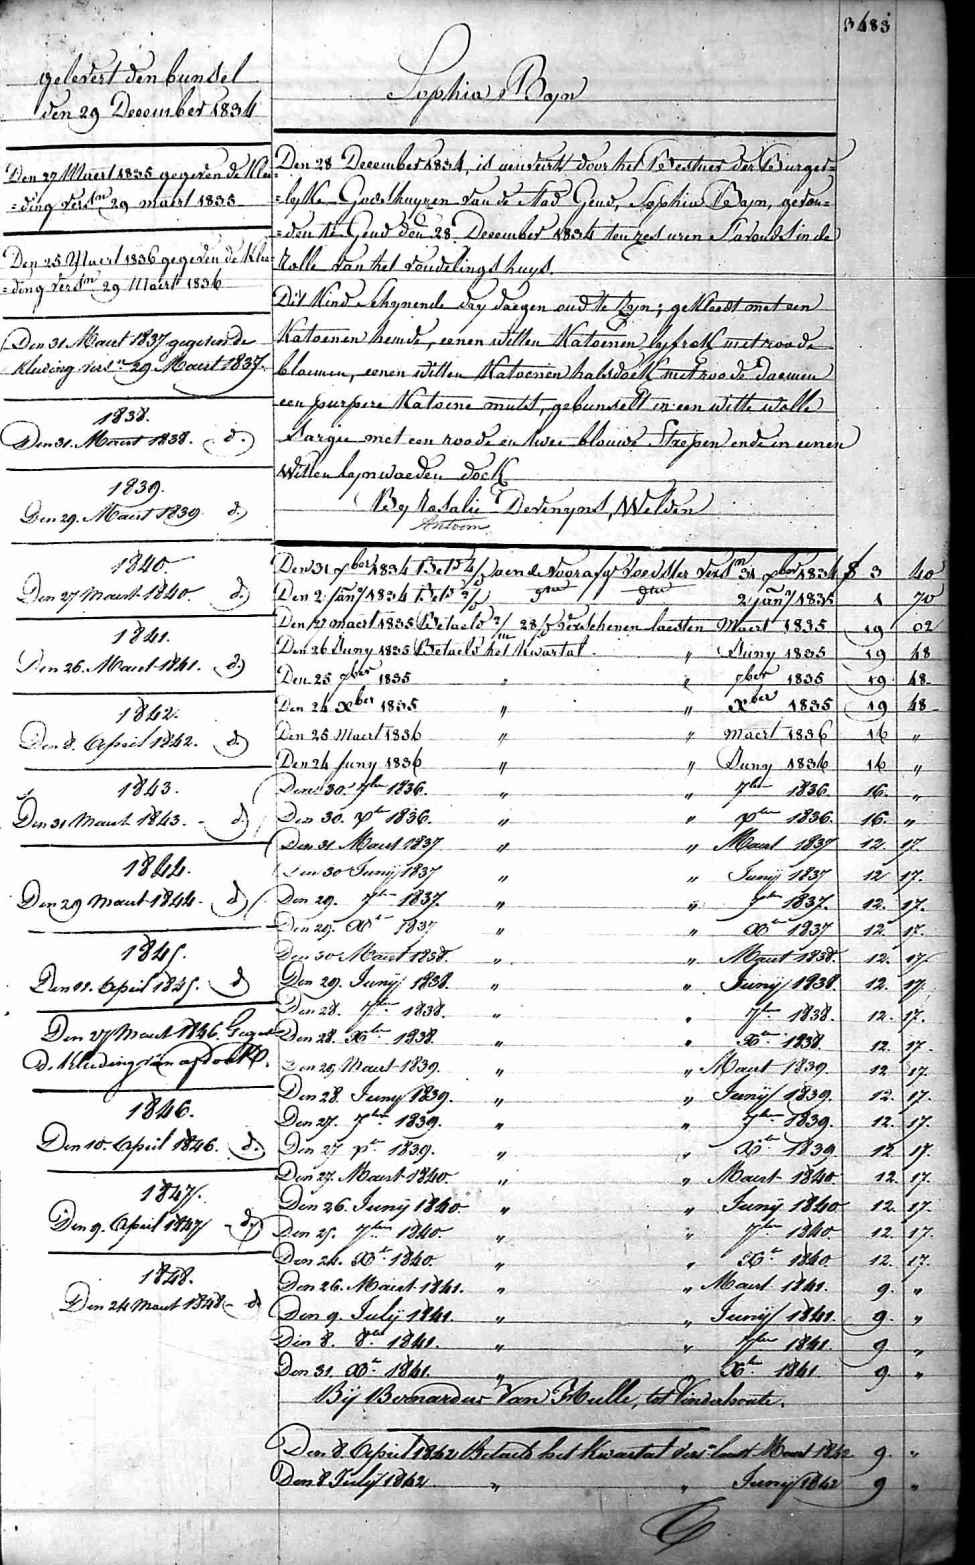 3483
gelevert den bunsel
den 29 December 1834
Den 27 Maert 1835 gegeven de Klee=
=ding vers.en 29 maert 1835
Den 25 Maert 1836 gegeven de Klee=
=ding vers.en 29 Maert 1836
Den 31 Maert 1837 gegeven de
Kleeding vers.n 29 Maert 1837.
1838.
Den 31. Maert 1838. d.)
1839.
Den 29. Maert 1839 d.)
1840.
Den 27 Maert 1840. d.)
1841.
Den 26. Maert 1841. d)
1842.
Den 8. April 1842. d)
1843.
Den 31 Maert 1843. - d)
1844.
Den 29 Maert 1844 - d)
1845.
Den 11. April 1845. d)
Den 27 Maert 1846. Gegev
d. Kleeding van
1846.
Den 10. April 1846. d.
1847.
Den 9. April 1847 - d)
1848.
Den 24 Maert 1848 - d
Sophia Byn
Den 28 December 1834, is aenveerd door het Bestuer der Burger=
=lyke Godshuyzen van de stad Gend, Sophia Byn, gevon=
=den te Gend den 28 December 1834 ten zes uren S'avonds in de
Rolle van het vondelingshuys.
Dit Kind schynende dry daegen oud te zyn; gekleedt met een
Katoenen hemde, eenen witten Katoenen lyfrok met roode
bloemen, eenen witten Katoenen halsdoek met roode
een purpere Katoene muts, gebunselt in een witte wolle
Sargie met een roode en twee blouwe Strepen ende in eenen
Witten lynwaeden doek
By Rosalie Devenyns, Welden
Den 31 xber 1834 Bet.d 4/ oende voorafg. voedster vers.n 31 xber 1834 f 3 40
Den 2 Jany 1834 Bet.d 2/ dto dto 2 Jany 1835 1 70
Den 27 maert 1835 Betaeld 2/m 28/ verschenen laesten Maert 1835 19 02
Den 26 Juny 1835 Betaeld het Kwartal. " Juny 1835 19 48
Den 25 7ber 1835 " " 7ber 1835 19 48
Den 24 xber 1835 " " xber 1835 19 48
Den 25 Maert 1836 " " Maert 1836 16 "
Den 24 Juny 1836 " " Juny 1836 16 "
Den 30. 7ber 1836. " " 7ber 1836. 16. "
Den 30. xber 1836. " " xber 1836. 16. "
Den 31 Maert 1837 " " Maert 1837 12. 17.
Den 30 Junij 1837 " " Junij 1837 12 17.
Den 29. 7ber 1837. " " 7ber 1837. 12. 17.
Den 29. Xber 1837 " " Xber 1837 12. 17.
Den 30 Maert 1838. " " Maert 1838. 12. 17.
Den 29. Junij 1838. " " Junij 1838. 12. 17.
Den 28. 7ber 1838. " " 7ber 1838. 12. 17.
Den 28. Xber 1838. " " Xber 1838. 12. 17.
Den 29 Maert 1839. " " Maert 1839. 12. 17.
Den 28. Juny 1839. " " Junij 1839. 12. 17.
Den 27. 7ber 1839. " " 7ber 1839. 12. 17.
Den 27 xber 1839. " " Xber 1839 12 17.
Den 27. Maert 1840. " " Maert 1840. 12. 17.
Den 26. Junij 1840 " " Junij 1840 12. 17.
Den 25. 7ber 1840. " " 7ber 1840. 12. 17.
Den 24. Xber 1840. " " Xber 1840. 12. 17.
Den 26. Maert 1841. " " Maert 1841. 9. "
Den 9. July 1841. " " Junij 1841. 9. "
Den 8. 8ber 1841. " " 7ber 1841. 9 "
Den 31. Xber 1841. " Xber 1841. 9. "
Bij Bernardus Van Hulle, tot Vinderhoute.
Den 8. April 1842 Betaeld het Kwartal vers. laest Maert 1842 9. "
Den 8 July 1842 " " Junij 1842 9 "